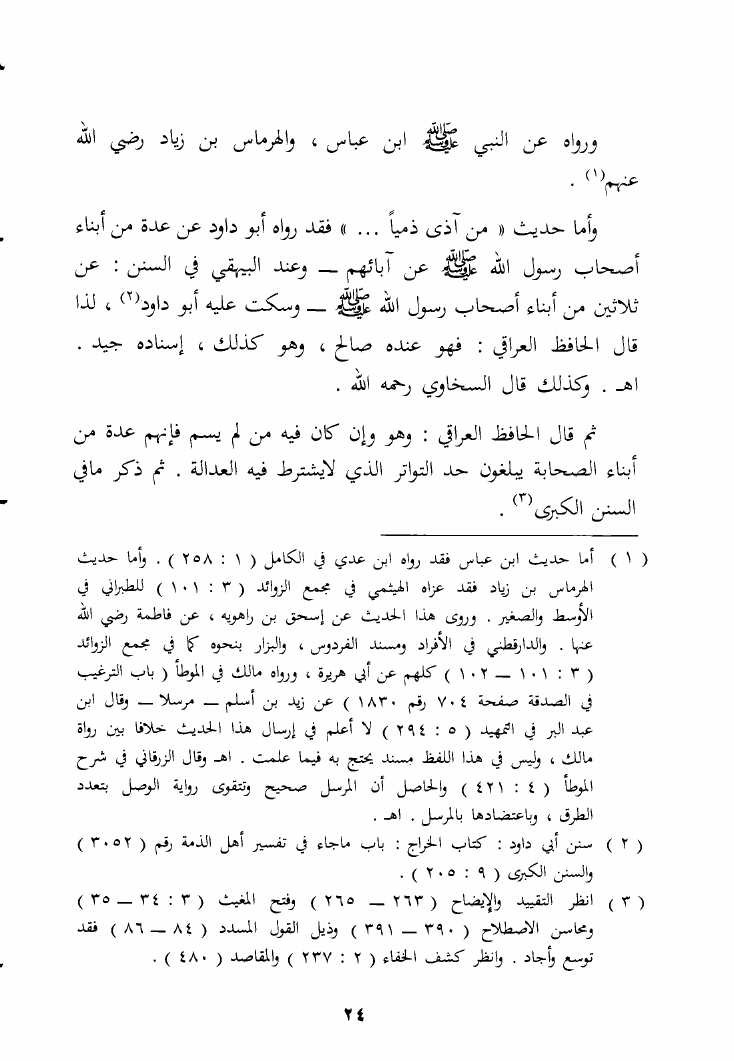 ورواه عن النبي ﷺ ابن عباس ، والهرماس بن زياد رضي الله
عنهم(١) .
وأما حديث « من آذى ذمياً ... » فقد رواه أبو داود عن عدة من أبناء
أصحاب رسول الله ﷺ عن آبائهم ــ وعند البيهقي في السنن : عن
ثلاثين من أبناء أصحاب رسول الله ﷺ ــ وسكت عليه أبو داود(٢) ، لذا
قال الحافظ العراقي : فهو عنده صالح ، وهو كذلك ، إسناده جيد .
اهـ . وكذلك قال السخاوي رحمه الله .
ثم قال الحافظ العراقي : وهو وإن كان فيه من لم يسم فإنهم عدة من
أبناء الصحابة يبلغون حد التواتر الذي لايشترط فيه العدالة . ثم ذكر مافي
السنن الكبرى(٣) .
( ١ ) أما حديث ابن عباس فقد رواه ابن عدي في الكامل ( ١ : ٢٥٨ ) . وأما حديث
الهرماس بن زياد فقد عزاه الهيثمي في مجمع الزوائد ( ٣ : ١٠١ ) للطبراني في
الأوسط والصغير . وروى هذا الحديث عن إسحق بن راهويه ، عن فاطمة رضي الله
عنها . والدارقطني في الأفراد ومسند الفردوس ، والبزار بنحوه كما في مجمع الزوائد
( ٣ : ١٠١ ــ ١٠٢ ) كلهم عن أبي هريرة ، ورواه مالك في الموطأ ( باب الترغيب
في الصدقة صفحة ٧٠٤ رقم ١٨٣٠ ) عن زيد بن أسلم ــ مرسلا ــ وقال ابن
عبد البر في التمهيد ( ٥ : ٢٩٤ ) لا أعلم في إرسال هذا الحديث خلافا بين رواة
مالك ، وليس في هذا اللفظ مسند يحتج به فيما علمت . اهـ وقال الزرقاني في شرح
الموطأ ( ٤ : ٤٢١ ) والحاصل أن المرسل صحيح وتتقوى رواية الوصل بتعدد
الطرق ، وباعتضادها بالمرسل . اهـ .
( ٢ ) سنن أبي داود : كتاب الخراج : باب ماجاء في تفسير أهل الذمة رقم ( ٣٠٥٢ )
والسنن الكبرى ( ٩ : ٢٠٥ ) .
( ٣ ) انظر التقييد والإيضاح ( ٢٦٣ ــ ٢٦٥ ) وفتح المغيث ( ٣ : ٣٤ ــ ٣٥ )
ومحاسن الاصطلاح ( ٣٩٠ ــ ٣٩١ ) وذيل القول المسدد ( ٨٤ ــ ٨٦ ) فقد
توسع وأجاد . وانظر كشف الخفاء ( ٢ : ٢٣٧ ) والمقاصد ( ٤٨٠ ) .
٢٤